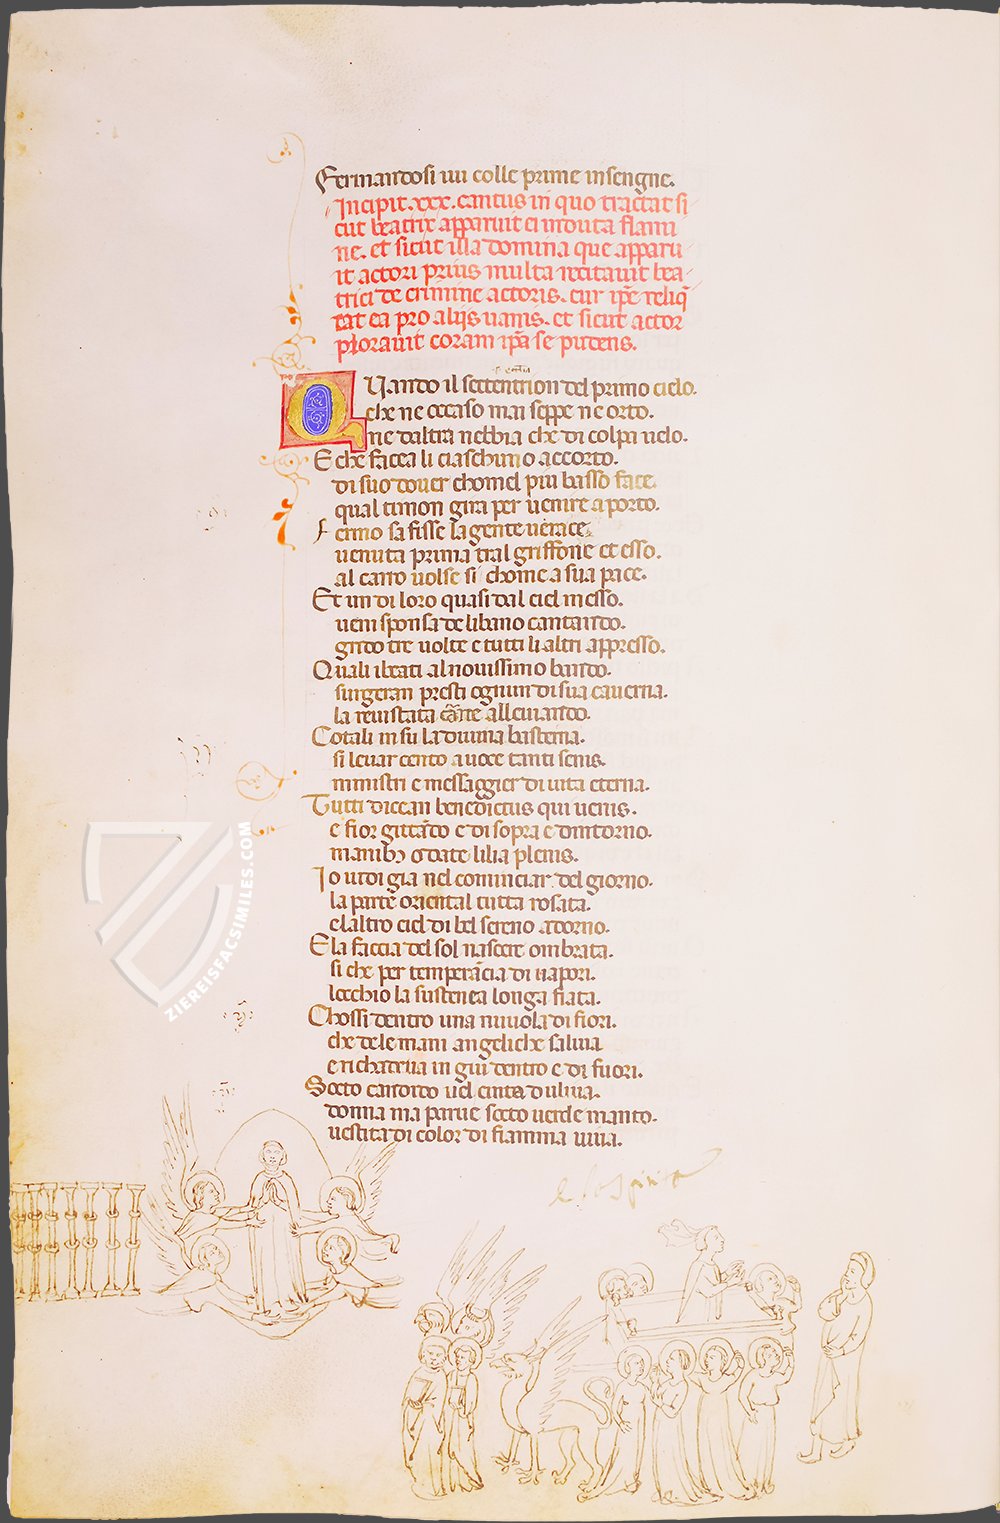 Fermandosi uu colle prime insengne.
Incipit .xxx. cantus in quo tractat si
cut beatrix apparuit ei induta flami
ne. et sicut illa domina que apparu
it actori prius multa recitauit bea
trici de crimine actoris. cur ipe reliq̄
rat ea pro alijs uanis. et sicut actor
plorauit coram ip̄a se pudens.
Quando il settentrion del primo cielo.
che ne occaso mai seppe ne orto.
ne daltra nebbia che di colpa uelo.
E che facea li ciaschuno accorto.
di suo douer chomel piu basso face.
qual timon gira per uenire a porto.
Fermo safisse la gente uerace.
uenuta prima tral griffone et esso.
al carro uolse si chome a sua pace.
Et un di loro quasi dal ciel messo.
ueni sponsa de libano cantando.
grido tre uolte e tutti li altri appresso.
Quali ibeati al nouissimo bando.
surgeran presti ognun di sua cauerna.
la reuistata carne alleuiando.
Cotali in su la diuina basterna.
si leuar cento a uoce tanti senis.
ministri e messaggier di uita eterna.
Tutti dicean benedictus qui uenis.
e fior gittando e di sopra e dintorno.
manib3 o date lilia plenis.
Io uidi gia nel cominciar del giorno.
la parte oriental tutta rosata.
e laltro ciel di bel sereno adorno.
E la faccia del sol nascere ombrata.
si che per temperācia di uapori.
lecchio la sustenea longa fiata.
Chossi dentro una nuuola di fiori.
che de le mani angeliche saliua
e richadeua in giu dentro e di fuori.
Socto candido uel cinta duliua.
donna ma parue socto uerde manto.
uestita di color di fiamma uiua.
e lo spirito
ZIEREISFACSIMILES.COM